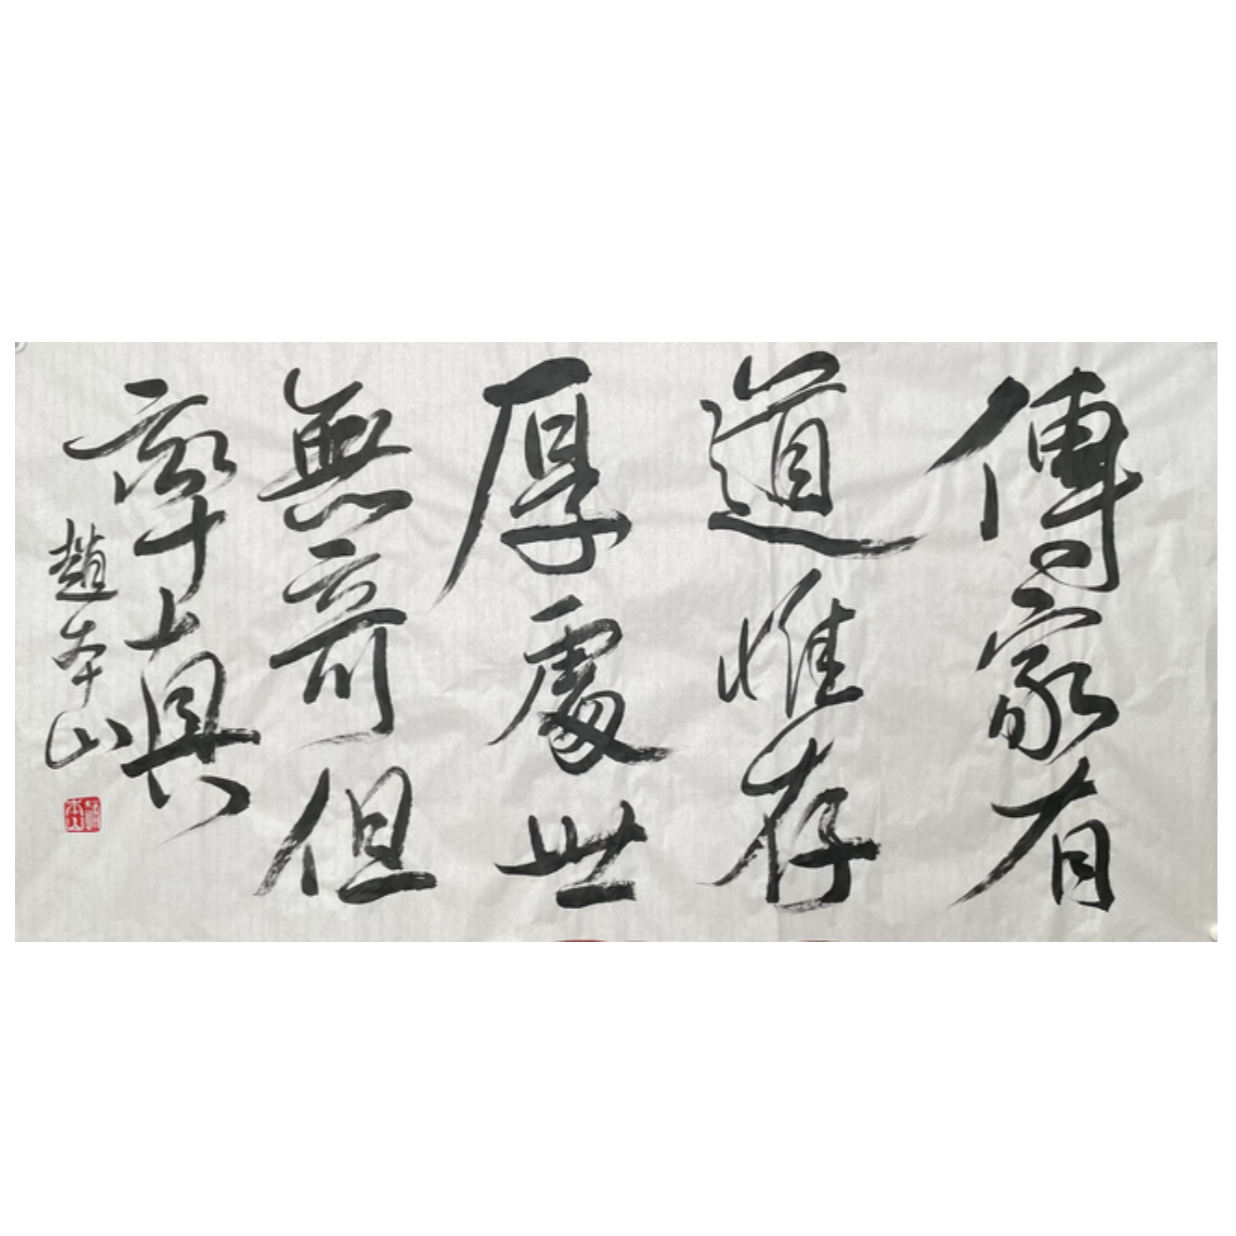 傳家有
道惟存
厚處世
無奇但
率真
趙本山